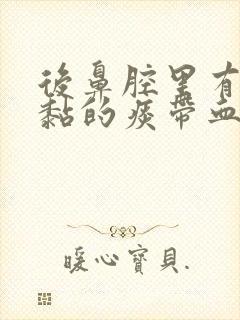 後鼻腔里有
黏的痰帶血
暖心寶貝.